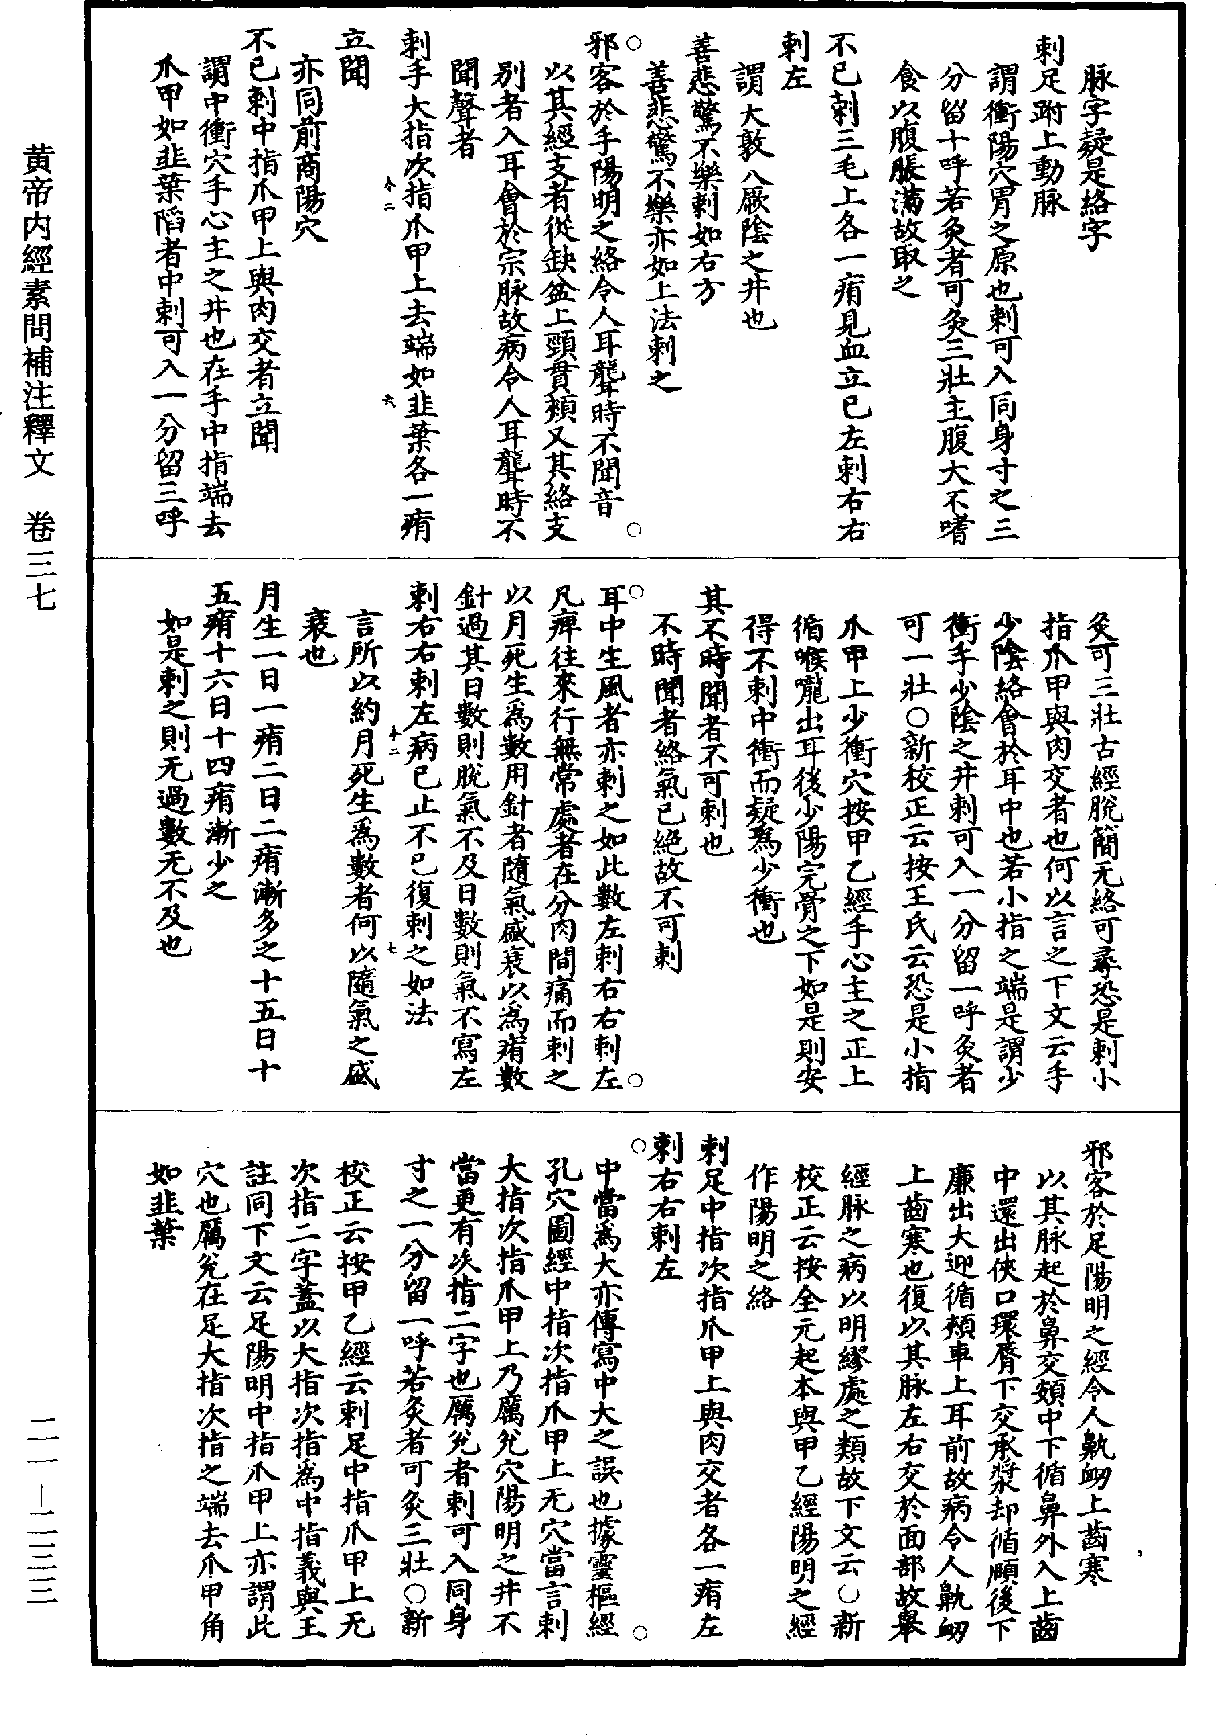 脉字疑是絡字
刺足跗上動脉
謂衝陽穴胃之原也刺可入同身寸之三
分留十呼若灸者可灸三壯主腹大不嗜
食以腹脹滿故取之
不已刺三毛上各一痏見血立已左刺右右
刺左
謂大敦穴厥陰之井也
善悲驚不樂刺如右方
善悲驚不樂亦如上法刺之
邪客於手陽明之絡令人耳聾時不聞音
以其經支者從缺盆上頸貫頰又其絡支
別者入耳會於宗脉故病令人耳聾時不
聞聲者
刺手大指次指爪甲上去端如韭葉各一痏
立聞
亦同前商陽穴
不已刺中指爪甲上與肉交者立聞
謂中衝穴手心主之井也在手中指端去
爪甲如韭葉陷者中刺可入一分留三呼
灸可三壯古經脫簡无絡可尋恐是刺小
指爪甲與肉交者也何以言之下文云手
少陰絡會於耳中也若小指之端是謂少
衝手少陰之井刺可入一分留一呼灸者
可一壯○新校正云按王氏云恐是小指
爪甲上少衝穴按甲乙經手心主之正上
循喉嚨出耳後少陽完骨之下如是則安
得不刺中衝而疑爲少衝也
其不時聞者不可刺也
不時聞者絡氣已絕故不可刺
耳中生風者亦刺之如此數左刺右右刺左
凡痹往來行無常處者在分肉間痛而刺之
以月死生爲數用針者隨氣盛衰以爲痏數
針過其日數則脫氣不及日數則氣不寫左
刺右右刺左病已止不已復刺之如法
言所以約月死生爲數者何以隨氣之盛
衰也
月生一日一痏二日二痏漸多之十五日十
五痏十六日十四痏漸少之
如是刺之則无過數无不及也
邪客於足陽明之經令人鼽衂上齒寒
以其脉起於鼻交頞中下循鼻外入上齒
中還出俠口環脣下交承漿却循頤後下
廉出大迎循頰車上耳前故病令人鼽衂
上齒寒也復以其脉左右交於面部故舉
經脉之病以明繆處之類故下文云○新
校正云按全元起本與甲乙經陽明之經
作陽明之絡
刺足中指次指爪甲上與肉交者各一痏左
刺右右刺左
中當爲大亦傳寫中大之誤也據靈樞經
孔穴圖經中指次指爪甲上无穴當言刺
大指次指爪甲上乃厲兊穴陽明之井不
當更有次指二字也厲兊者刺可入同身
寸之一分留一呼若灸者可灸三壯○新
校正云按甲乙經云刺足中指爪甲上无
次指二字蓋以大指次指爲中指義與王
註同下文云足陽明中指爪甲上亦謂此
穴也厲兊在足大指次指之端去爪甲角
如韭葉
黄帝内經素問補注釋文　卷三七
二一—二三三